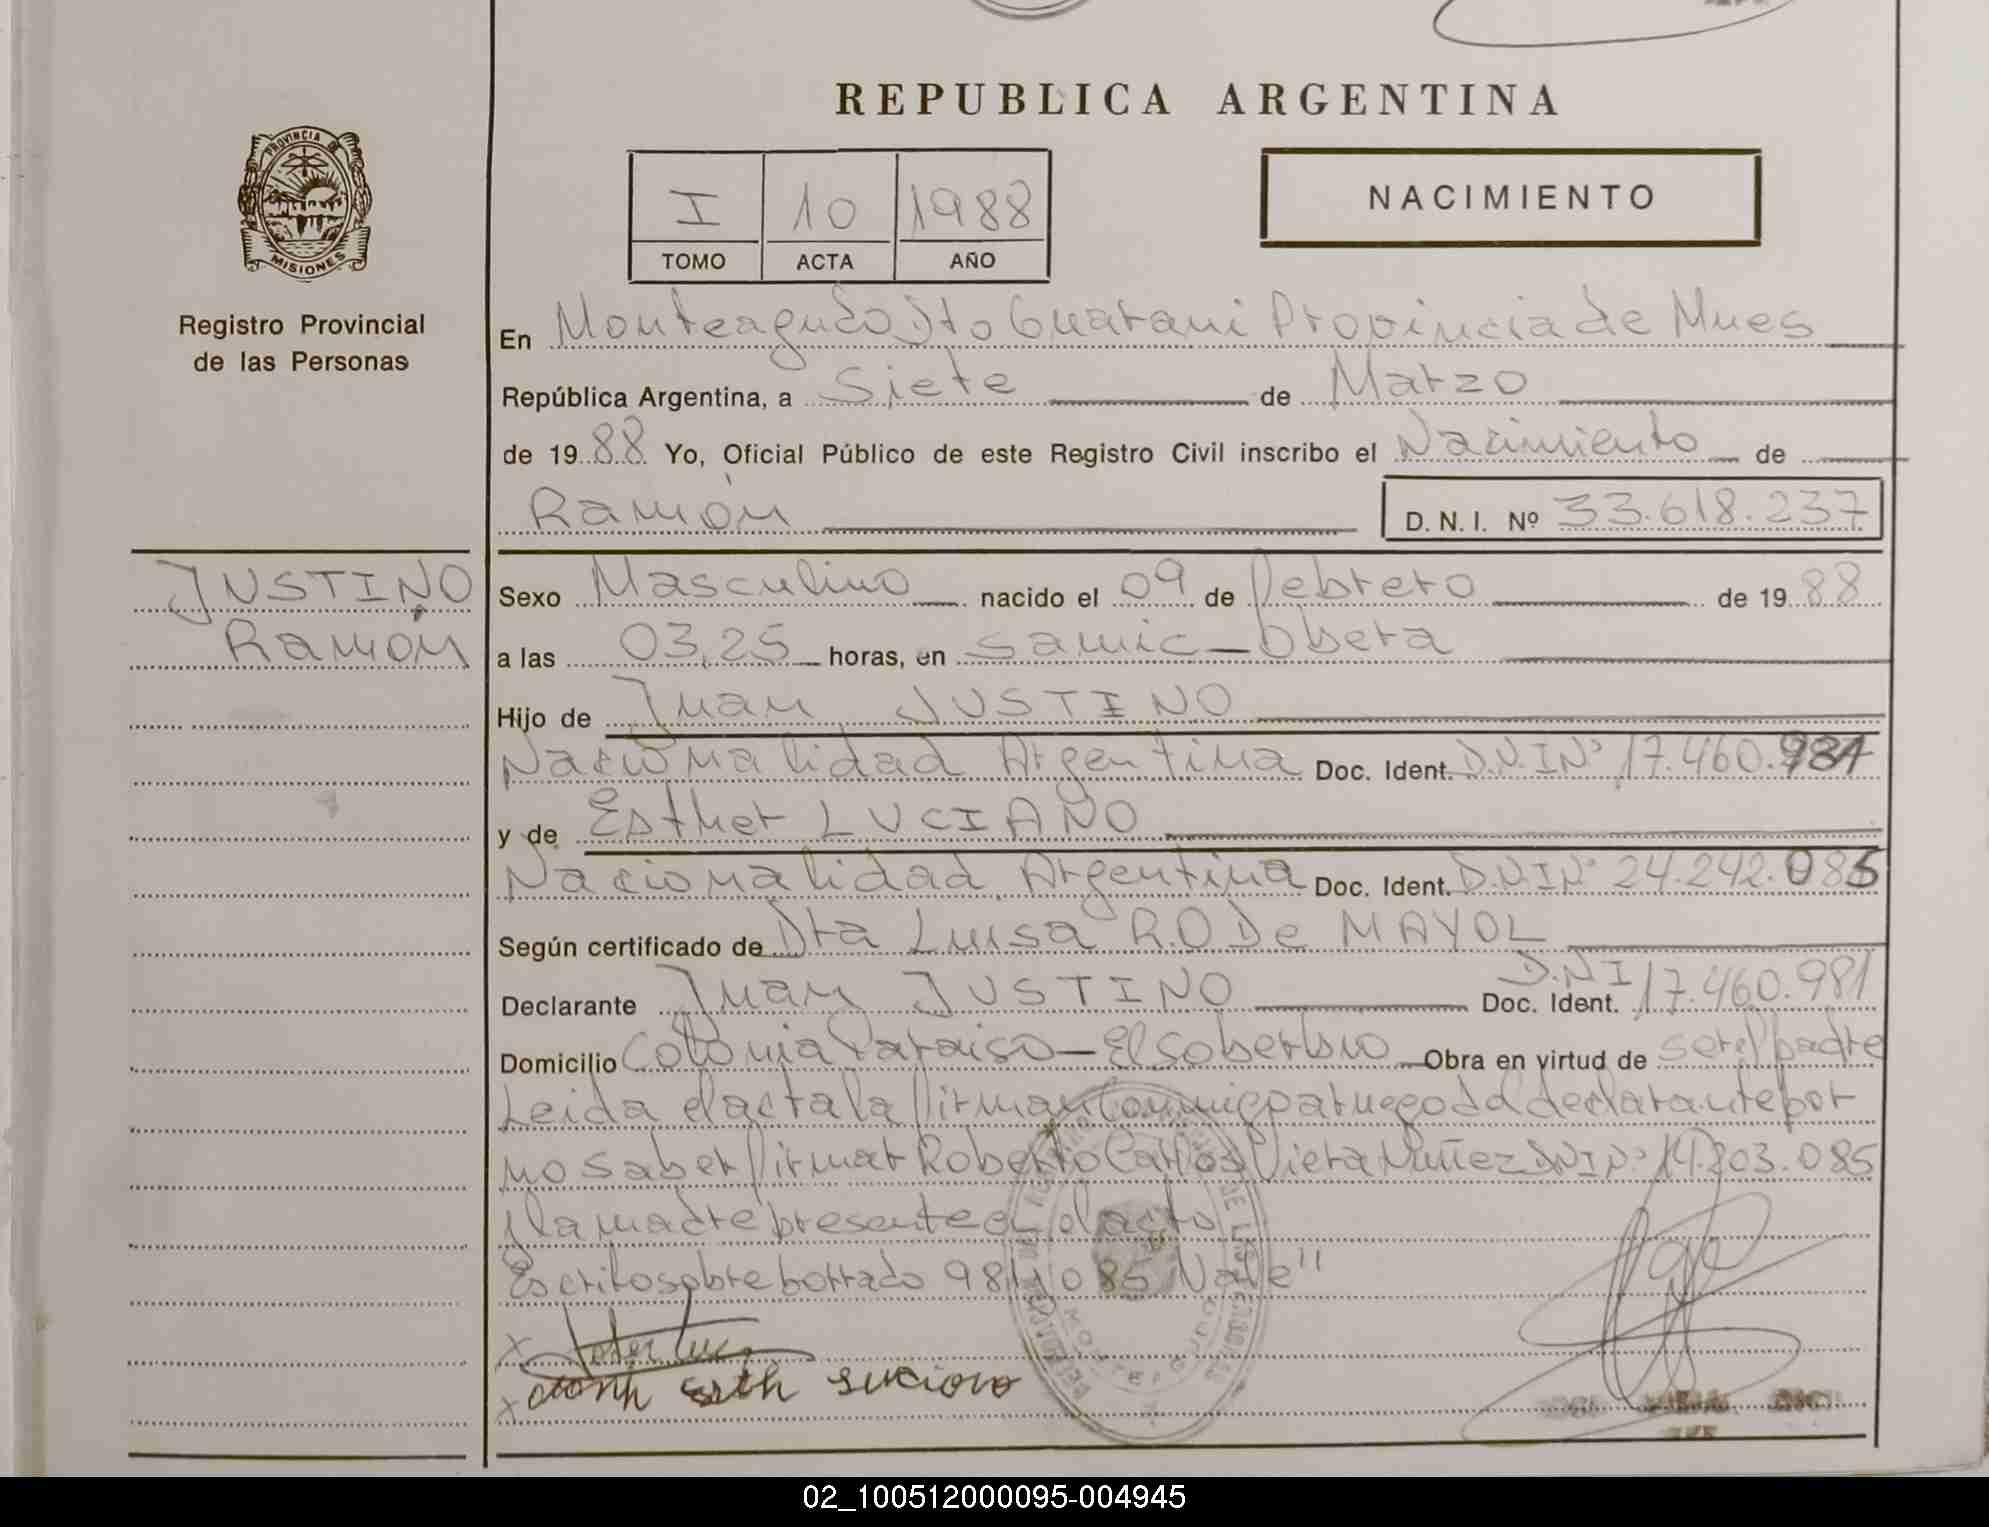 REPUBLICA ARGENTINA
PROVINCIA DE
MISIONES
Registro Provincial
de las Personas
I 10 1988
TOMO ACTA AÑO
NACIMIENTO
En Monteagudo Dto Guarani Provincia de Mnes
República Argentina, a Siete de Marzo
de 1988 Yo, Oficial Público de este Registro Civil inscribo el Nacimiento de
Ramón D. N. I. Nº 33.618.237
JUSTINO
Ramón
Sexo Masculino nacido el 09 de febrero de 1988
a las 03,25 horas, en Samic - Obera
Hijo de Juan JUSTINO
Nacionalidad Argentina Doc. Ident. D.N.I Nº 17.460.981
y de Esther LUCIANO
Nacionalidad Argentina Doc. Ident. D.N.I Nº 24.242.085
Según certificado de Dra Luisa R.O De MAYOL
Declarante Juan JUSTINO Doc. Ident. D.N.I 17.460.981
Domicilio Colonia Paraiso - El Soberbio Obra en virtud de ser el padre
Leida el acta la firman conmigo a ruego del declarante por
no saber firmar Roberto Carlos Vieta Nuñez DNI Nº 14.203.085
y la madre presente en el acto
Escrito sobre borrado 981 y 085 Vale"
02_100512000095-004945